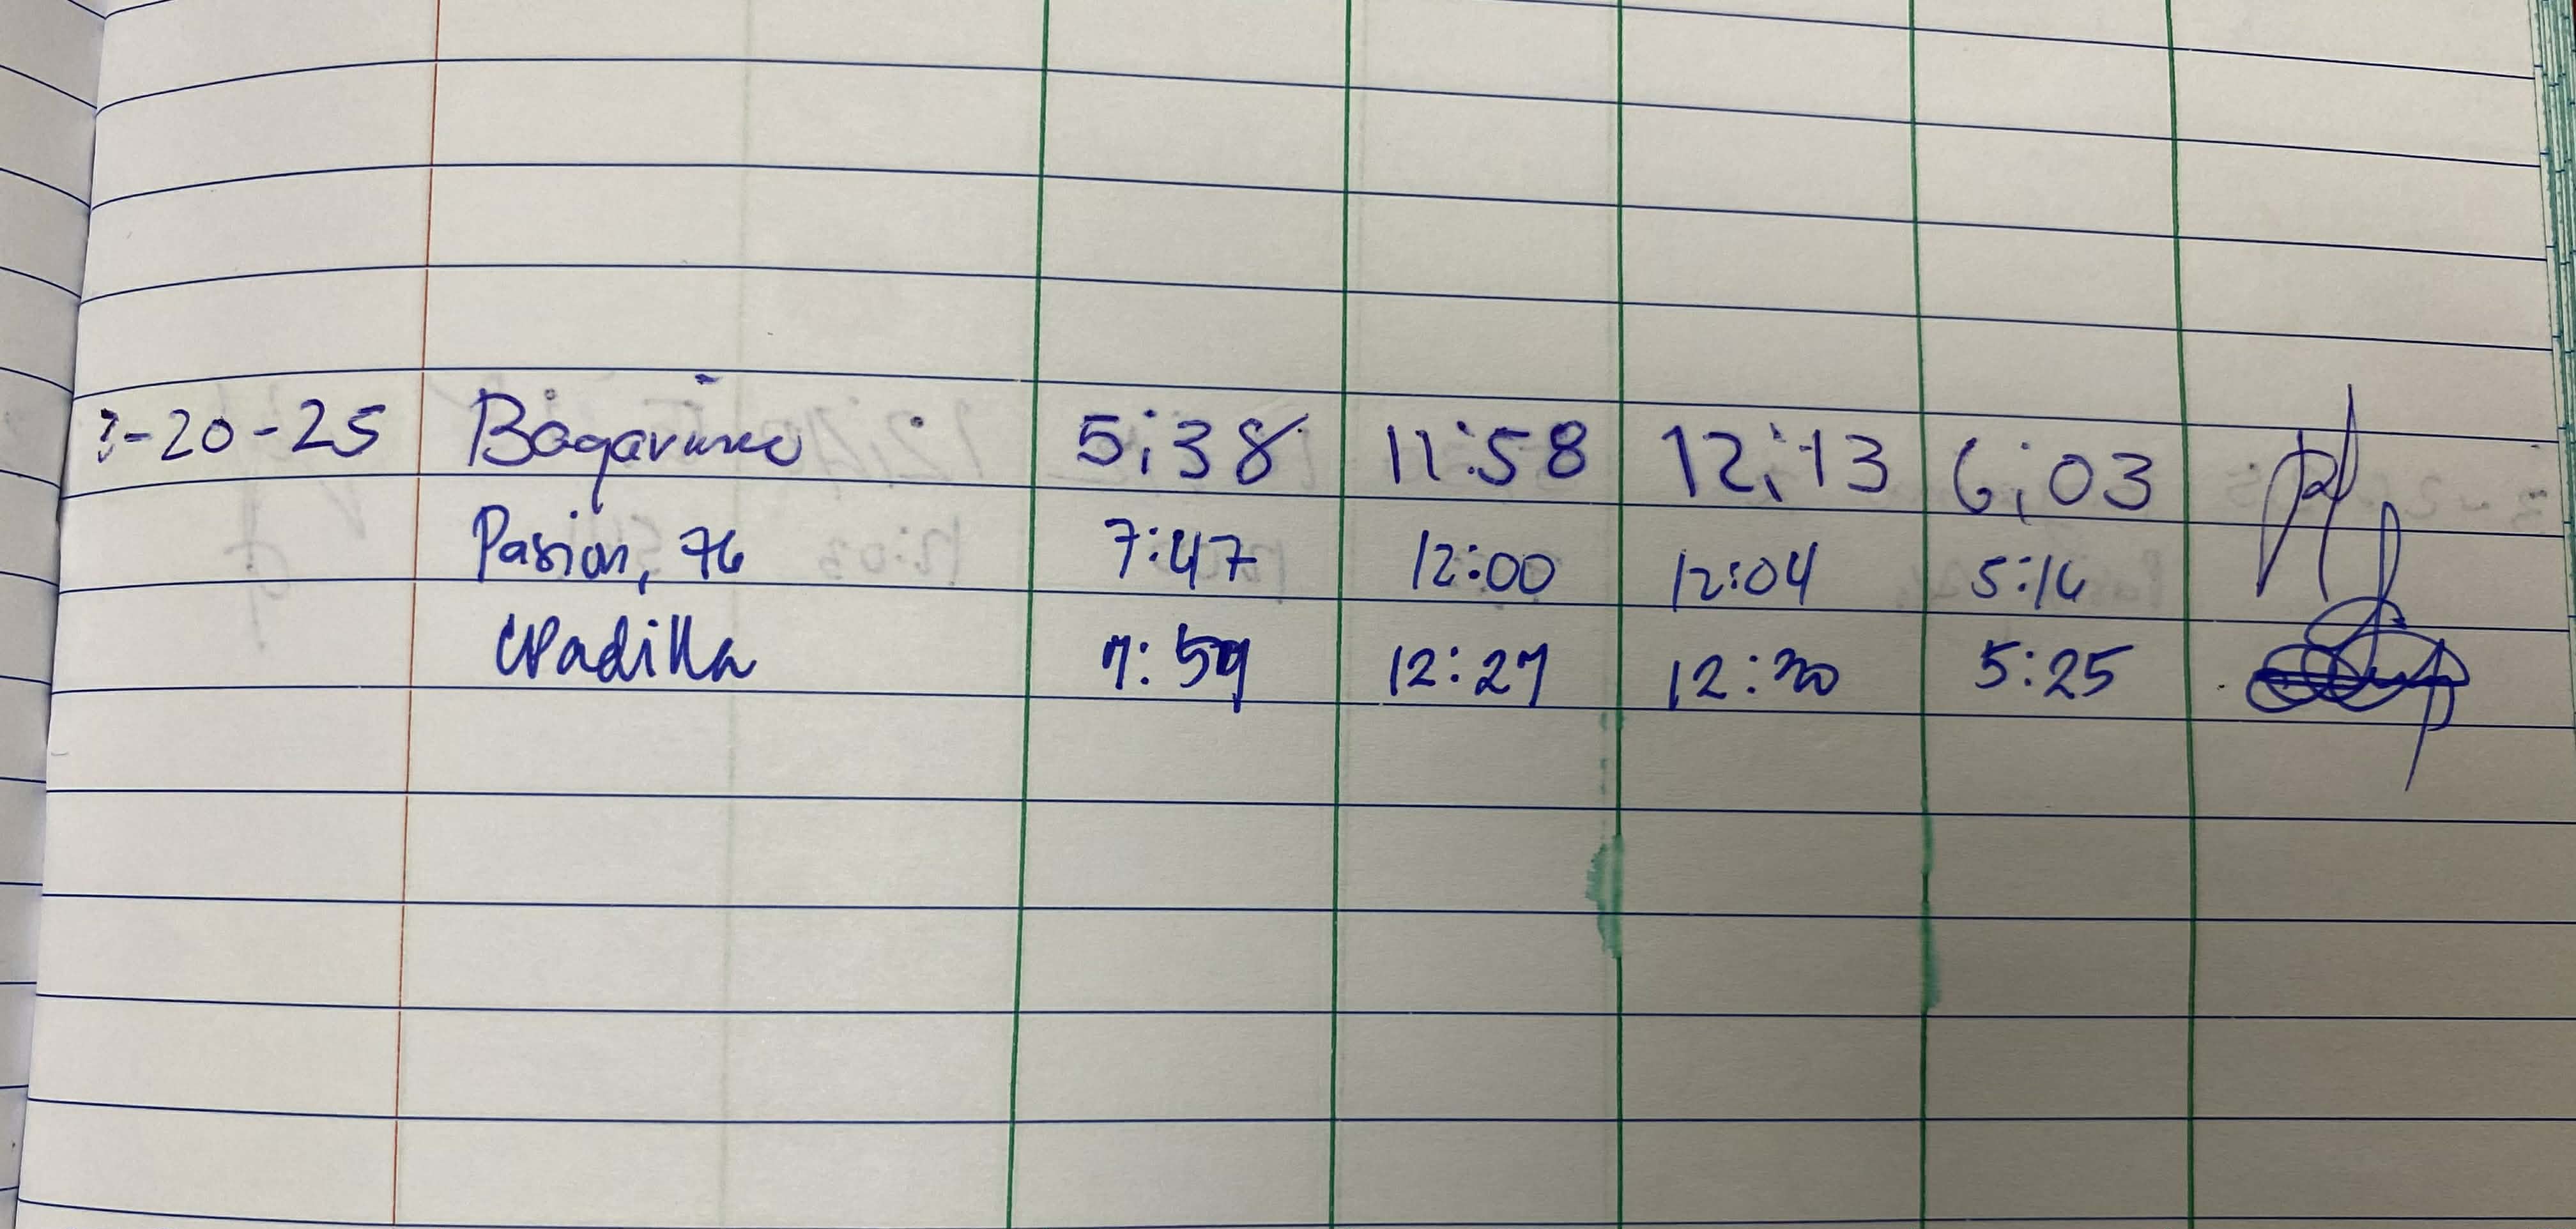 3-20-25 5:38 11:58 12:13 6:03
Pasion, 7:47 12:00 12:04 5:16
CPadilla 7:59 12:27 12:30 5:25